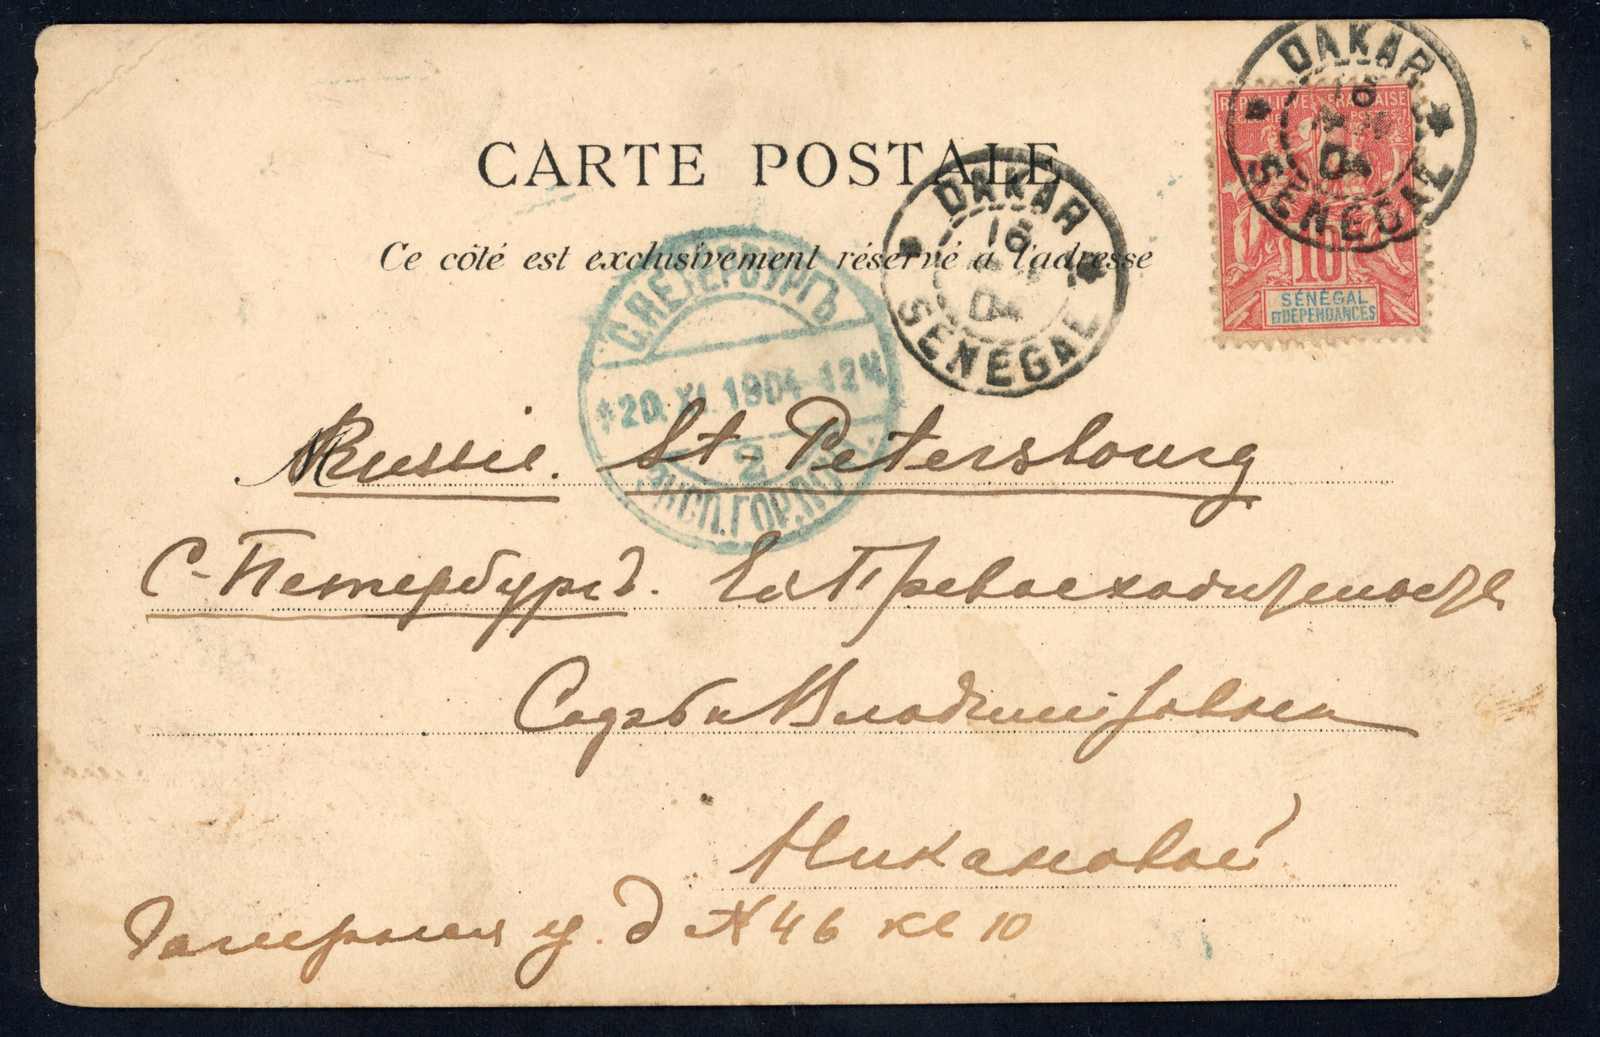 CARTE POSTALE
Ce côté est exclusivement réservé à l'adresse
RÉPUBLIQUE FRANÇAISE
10
SÉNÉGAL
ET DÉPENDANCES
DAKAR
16
04
SÉNÉGAL
DAKAR
16
04
SÉNÉGAL
С.ПЕТЕРБУРГЪ
*20.XI.1904 12Ч
2
ЭКСП.ГОР.ПОЧТ.
Russie. St-Petersbourg
С-Петербургъ. Ея Превосходительству
Владимировне
Никановой
Галерная у. д № 46 кв 10